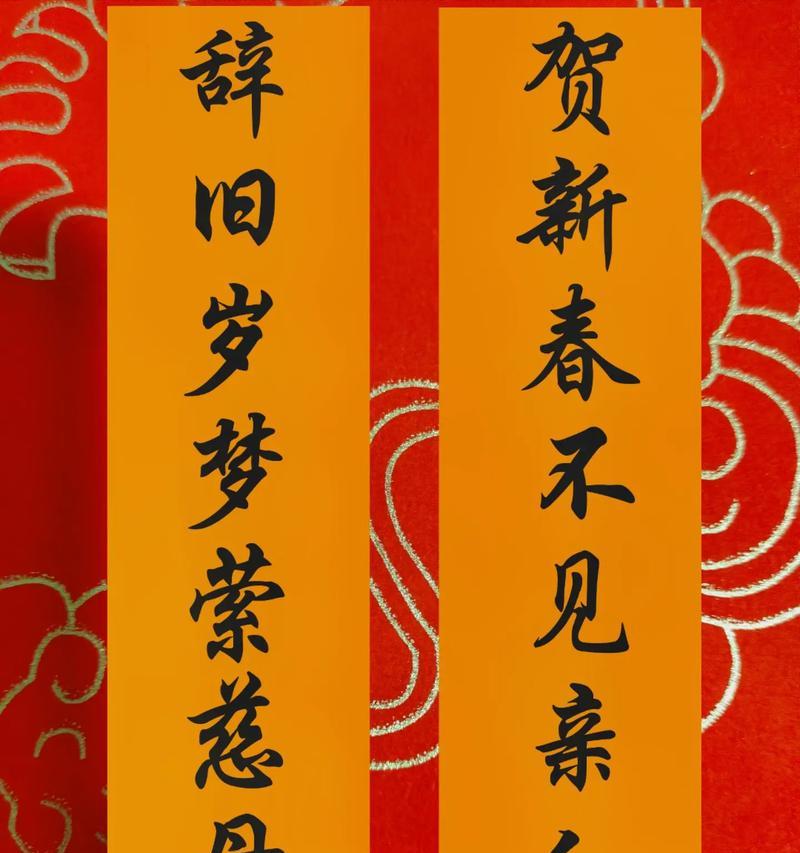 辞旧岁梦萦慈
贺新春不见亲